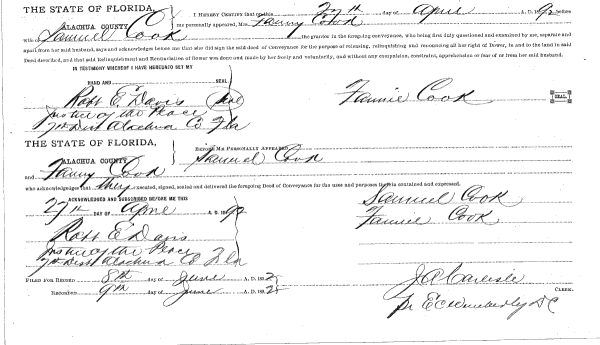 THE STATE OF FLORIDA,
ALACHUA COUNTY
I HEREBY CERTIFY that on this 27th day of April A. D. 1892 before
me personally appeared, Mrs. Fanny Cook
wife of Samuel Cook the grantor in the foregoing conveyance, who being first duly questioned and examined by me, separate and
apart from her said husband, says and acknowledges before me that she did sign the said deed of Conveyance for the purpose of releasing, relinquishing and renouncing all her right of Dower, in and to the land in said
Deed described, and that said Relinquishment and Renunciation of Dower was done and made by her freely and voluntarily, and without any compulsion, constraint, apprehension or fear of or from her said husband.
IN TESTIMONY WHEREOF I HAVE HEREUNTO SET MY
HAND AND SEAL
Robt E. Davis (Seal)
Fannie Cook SEAL
Justice of the Peace
7th Dist Alachua Co Fla
THE STATE OF FLORIDA,
ALACHUA COUNTY
BEFORE ME PERSONALLY APPEARED Samuel Cook
and Fanny Cook
who acknowledged that they executed, signed, sealed and delivered the foregoing Deed of Conveyance for the uses and purposes therein contained and expressed.
ACKNOWLEDGED AND SUBSCRIBED BEFORE ME THIS
Samuel Cook
27th DAY OF April A. D. 1892
Fannie Cook
Robt E Davis
Justice of the Peace
7th Dist Alachua Co Fla
FILED FOR RECORD 8th day of June A. D. 1892
J A Carlisle
RECORDED 9th day of June A. D. 1892
CLERK.
Pr E C Wimberly DC